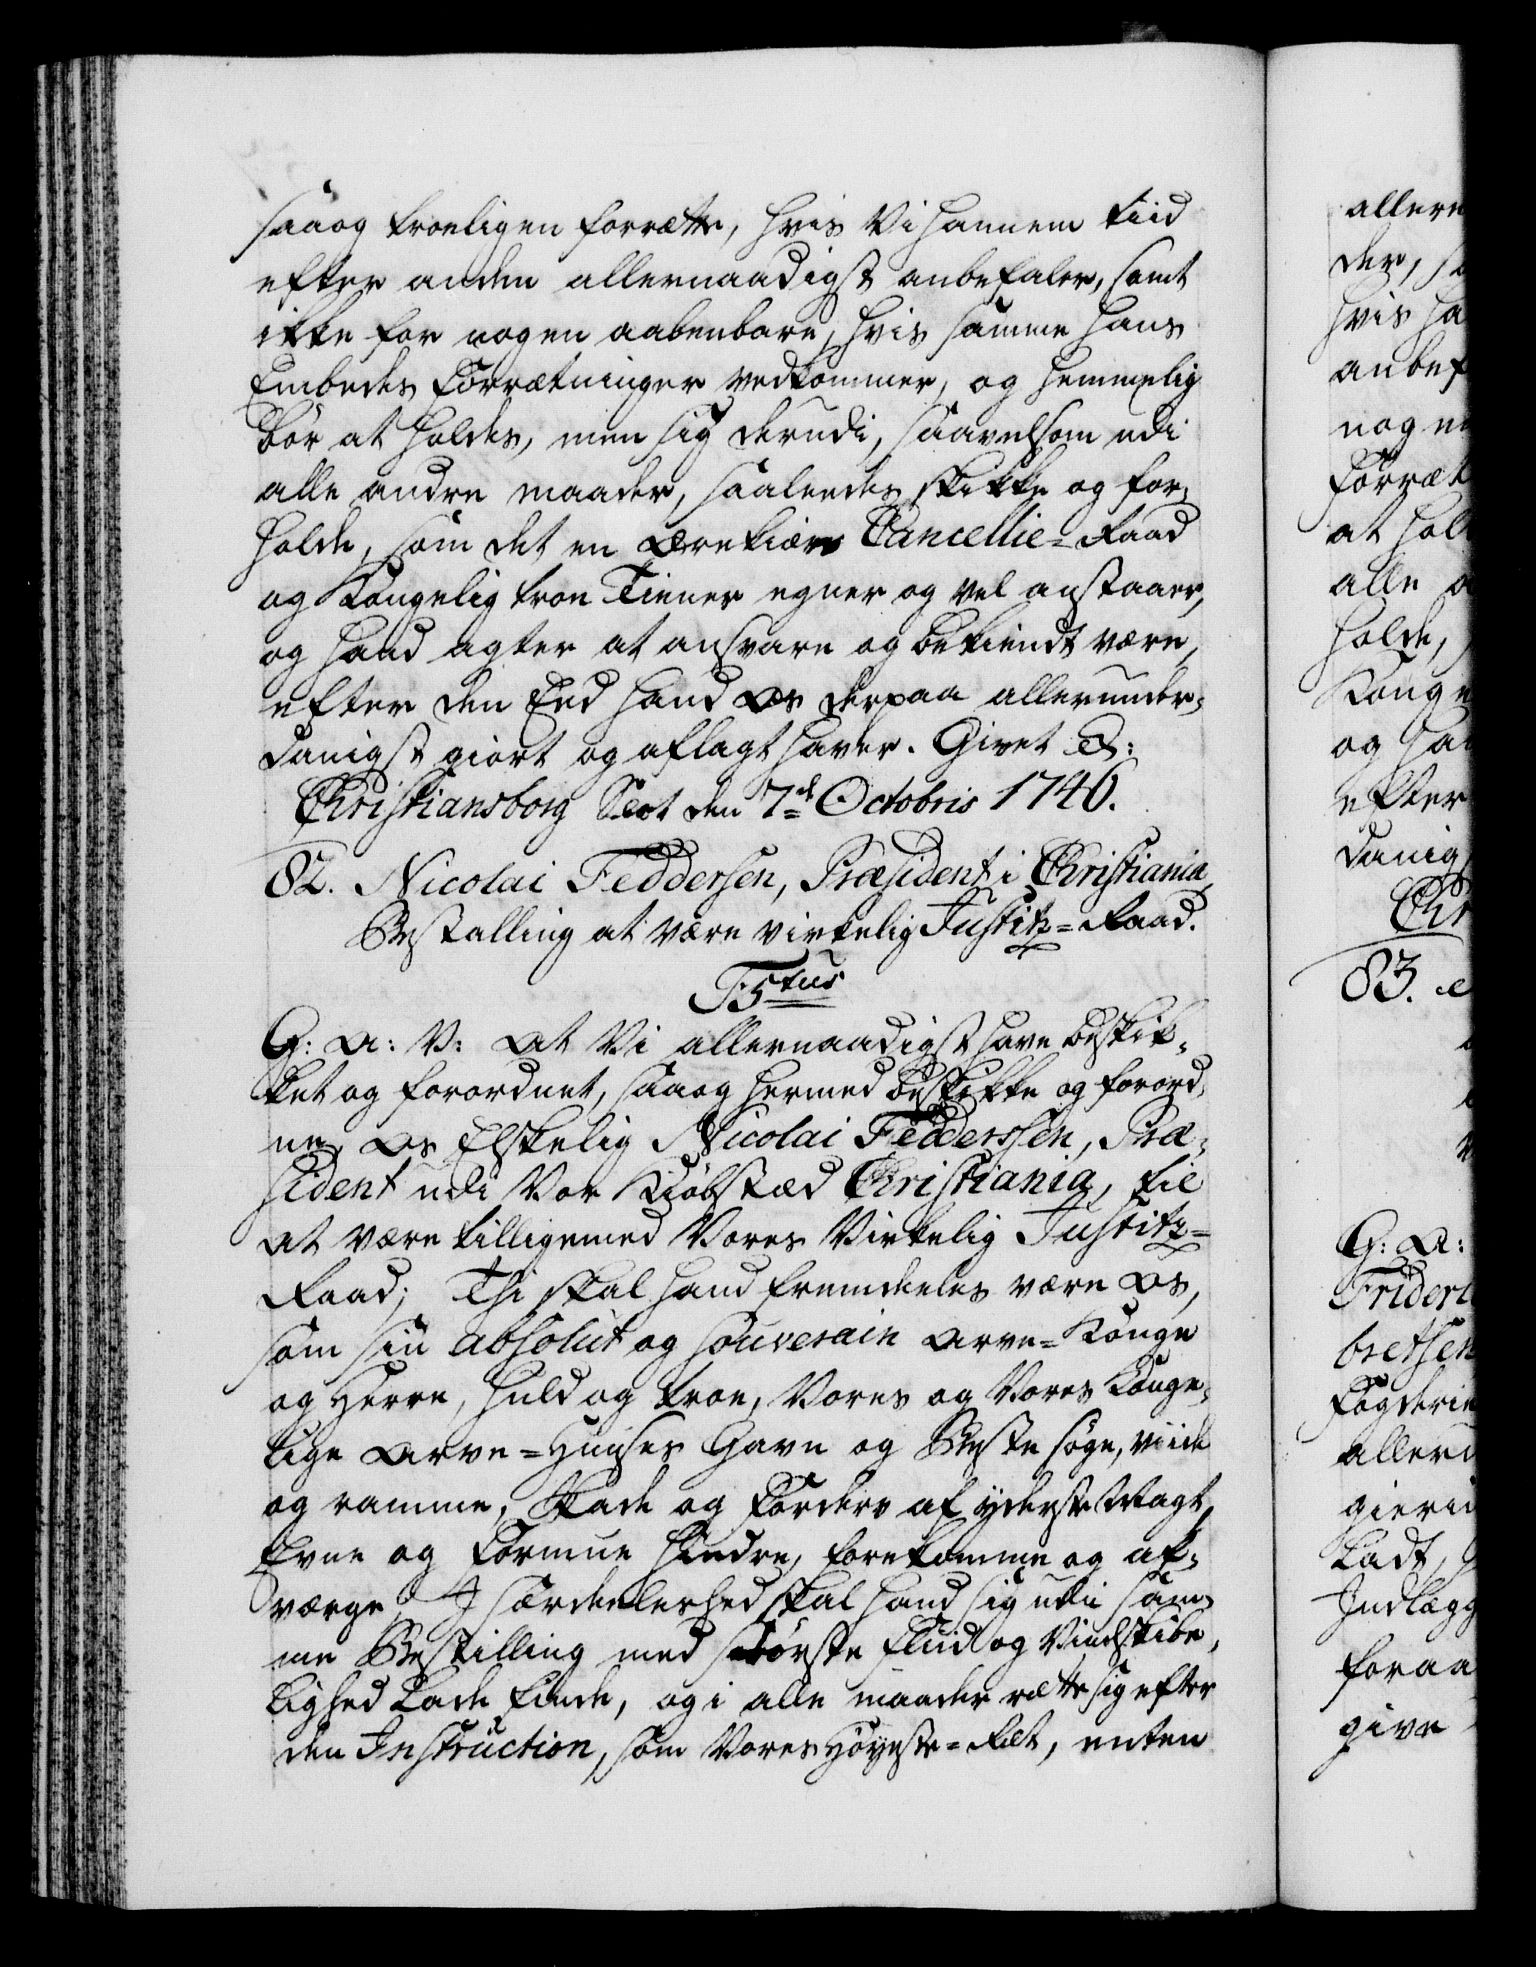 saaog troeligen forrætte, hvis Vi hannem tiid
efter anden allernaadigst anbefaler, samt
ikke for nogen aabenbare, hvis samme hans
Embedes Forrætninger vedkommer, og hemmelig
bör at holdes, men sig derudi, saavelsom udi
alle andre maader, saaledes skikke og for-
holde, som det en ærekiær Cancellie-Raad
og Kongelig troe Tiener egner og vel anstaaer,
og hand agter at ansvare og bekiendt være,
efter den Eed hand Os derpaa allerunder-
danigst giort og aflagt haver. Givet &:
Christiansborg Slot den 7de Octobris 1746.
82. Nicolai Feddersen, Præsident i Christiania,
Bestalling at være virkelig Justitz-Raad.
F5tus
G: A: V: At Vi allernaadigst have beskik-
ket og forordnet, saaog hermed beskikke og forord-
ne, Os Elskelig Nicolai Fedderssen, Præ-
sident udi Vor Kiöbstæd Christiania, til
at være tilligemed Vores Virkelig Justitz-
Raad; Thi skal hand fremdeeles være Os,
som sin absolut og souverain Arve-Konge
og Herre, huld og troe, Vores og Vores Konge-
lige Arve-Huuses Gavn og Beste söge, viide
og ramme, Skade og Forderv af yderste Magt,
Evne og Formue hindre, forekomme og af-
værge. I særdeeleshed skal hand sig udi sam-
me Bestilling med störste Fliid og Vindskibe-
lighed lade finde, og i alle maader rette sig efter
den Instruction, som Vores Höyeste-Ret, enten
allern
der, sa
hvis ha
anbef
nogen
Forræt
at hol
alle a
holde,
Konge
og ha
efter
danig
Chr
83.
G: A:
Frideri
bretsen
Fogderie
alleru
gieri
ladt,
Indlægg
foraa
give